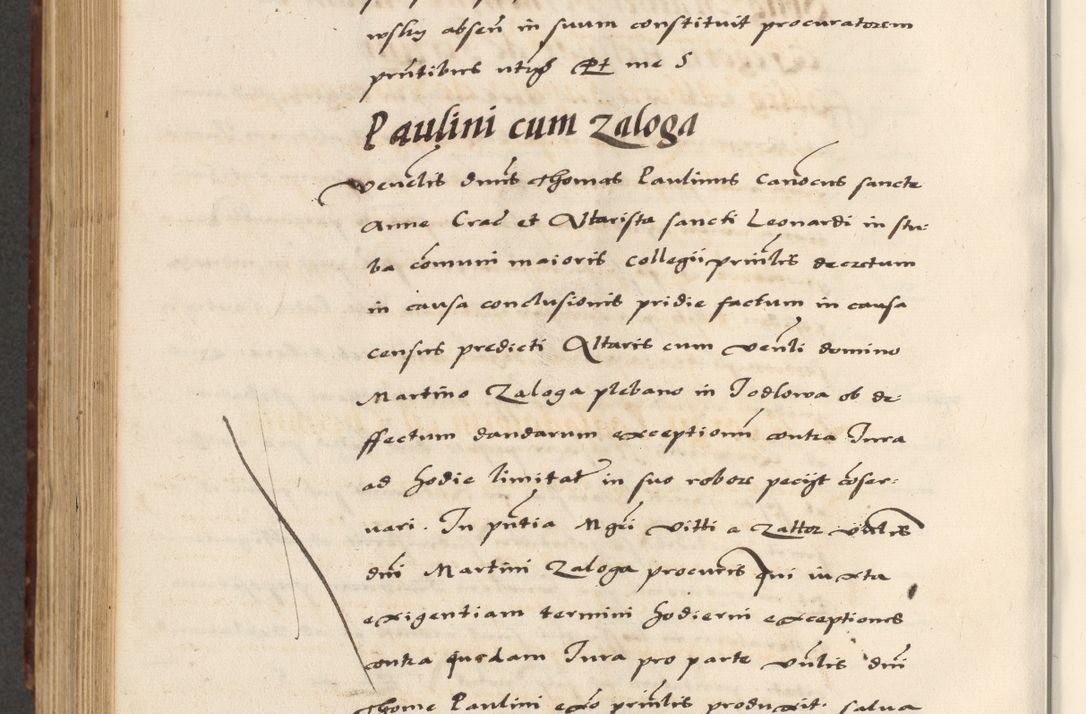 wsky absen in suum constituit procuratorem
pntibus utrqz Pt me S
Paulini cum Zaloga
Venelis dnus Thomas Paulinus Canocus sancte
Anne Crac et Altarista sancti Leonardi in stu-
ba comuni maioris collegii prinlis decretum
in causa conclusionis pridie factum in causa
census predicti Altaris cum Venli domino
Martino Zaloga plebano in Jodlowa ob de-
ffectum dandarum exceptionu contra Jura
ad hodie limitat in suo robore peciit coser-
vari. In pntia Mgri Vitti a Zattor
dni Martini Zaloga procuris qui iuxta
exigentiam termini hodierni exceptiones
contra quedam Jura pro parte Vnlis dni
Thome Paulini ex prinlis produxit salua